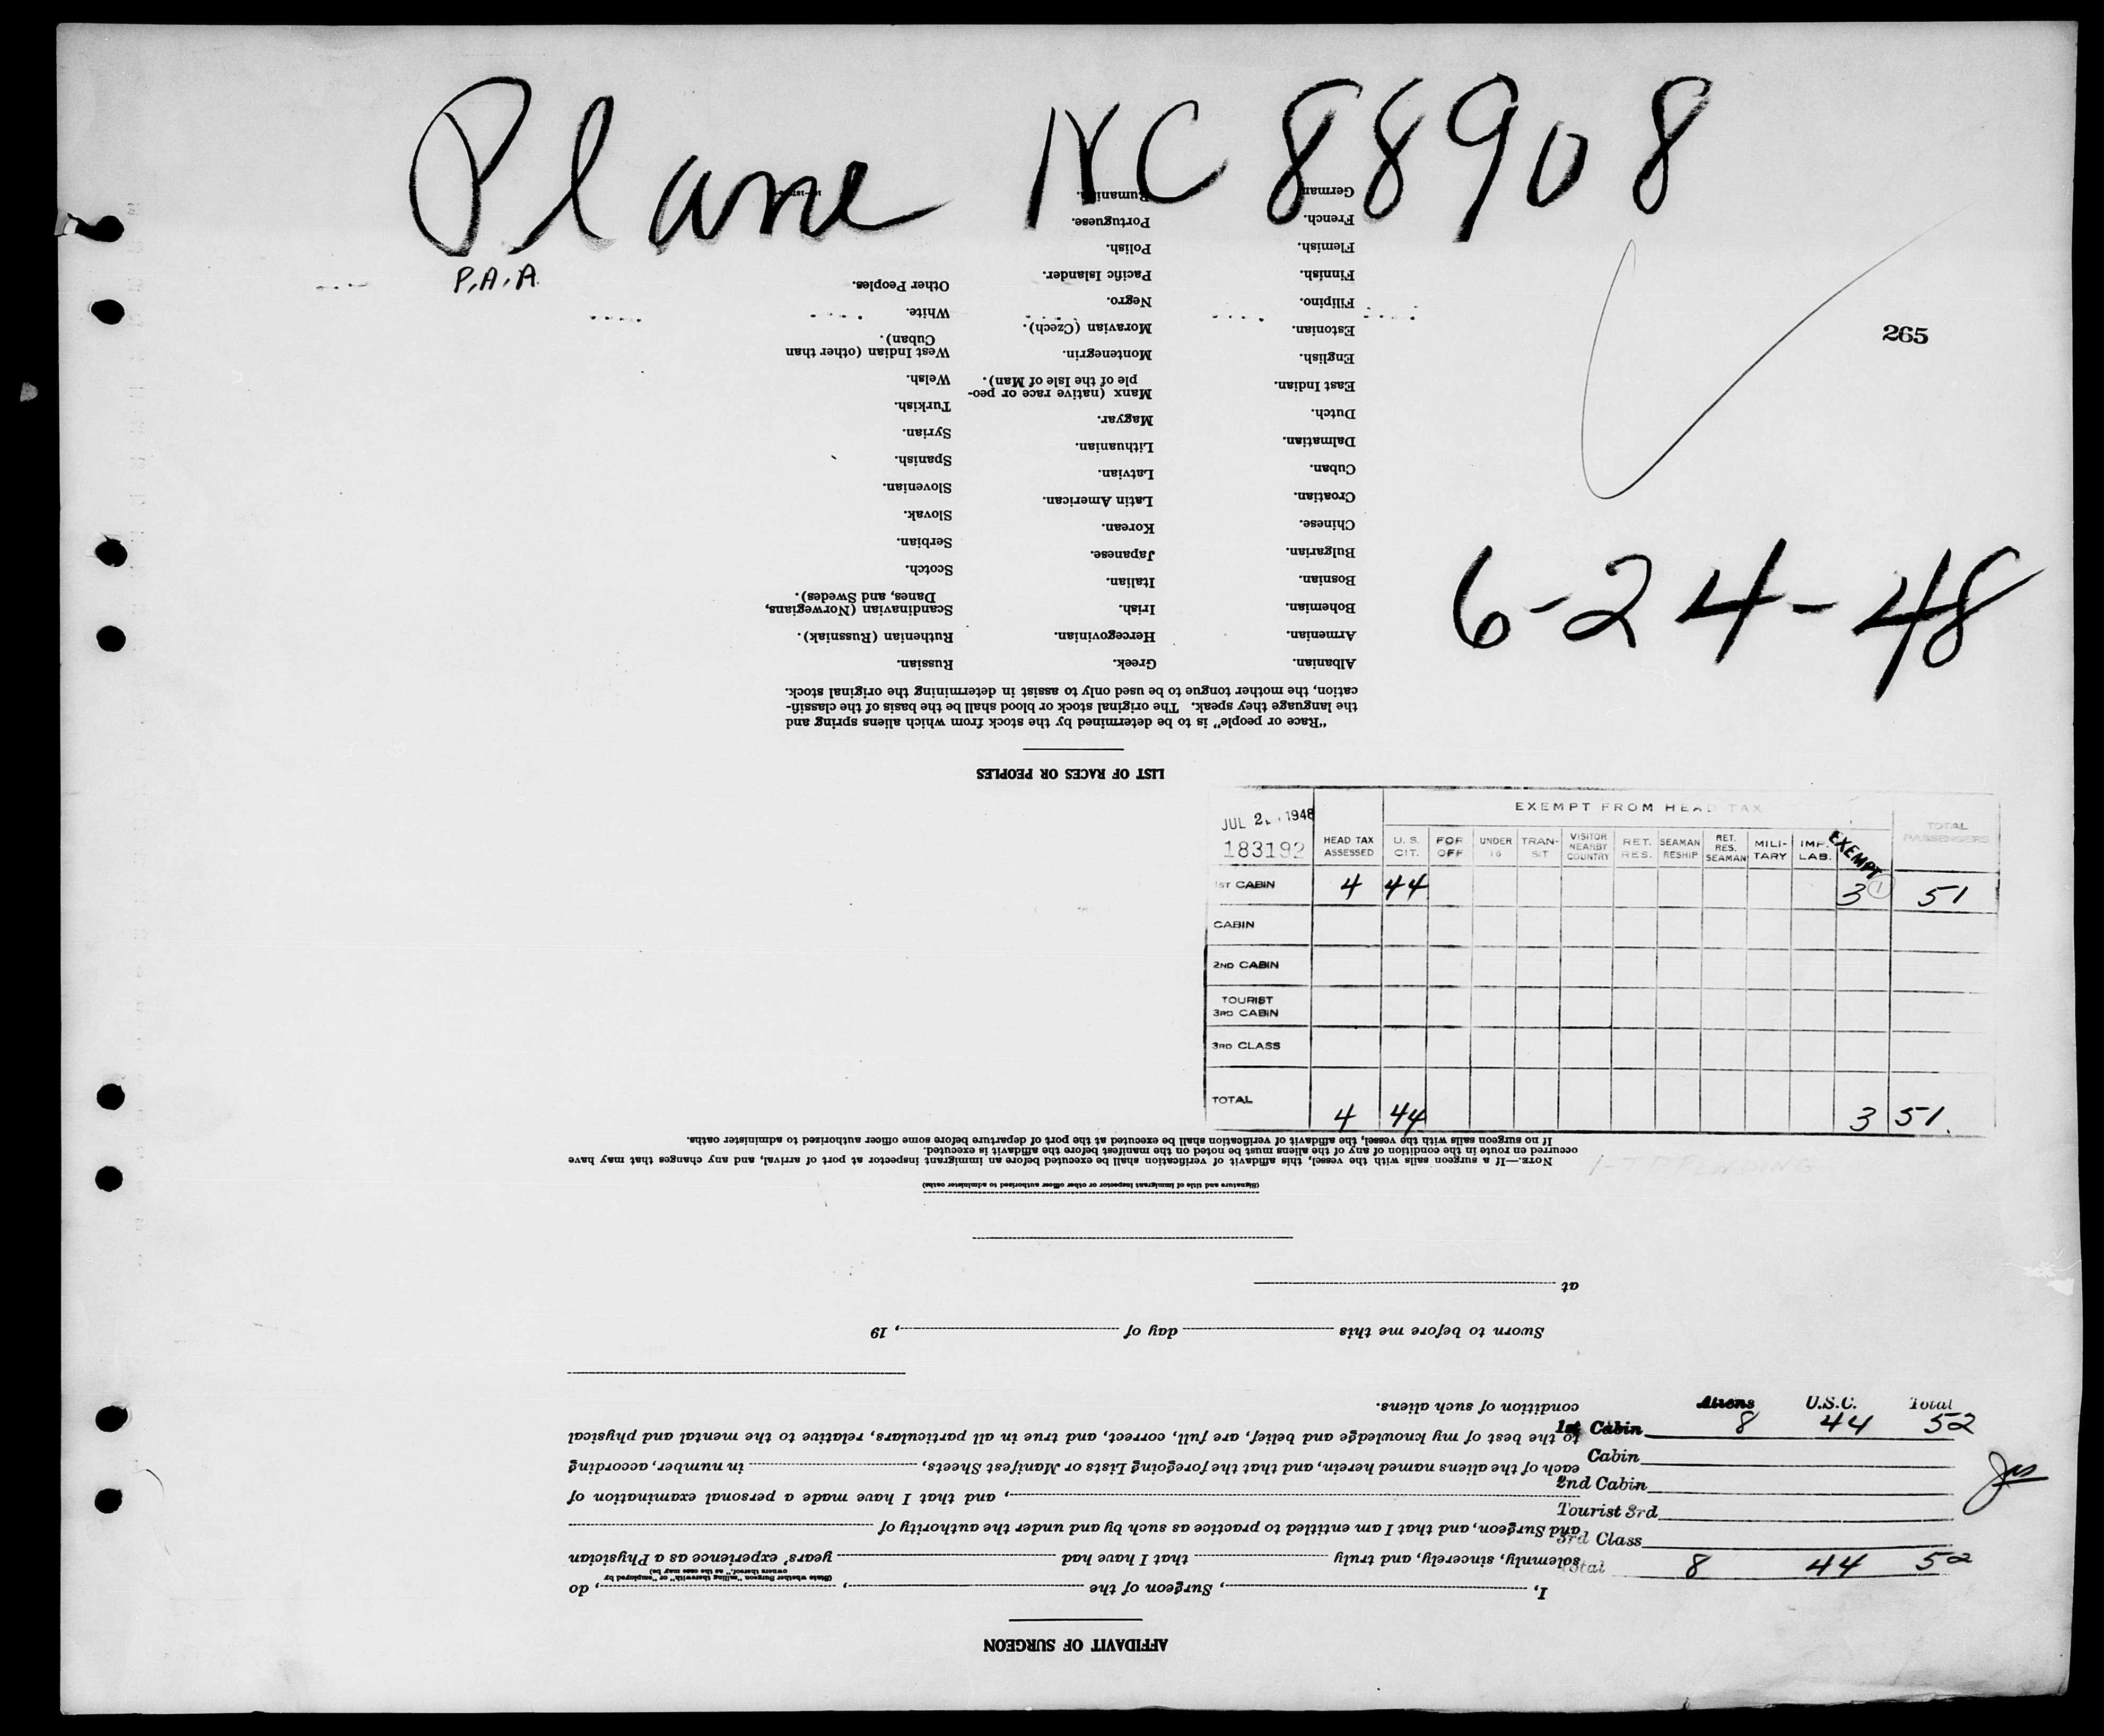 Plane NC 88908
P.A.A.
265
6-24-48
JUL 2 1948
183192
EXEMPT FROM HEAD TAX
HEAD TAX ASSESSED
U. S. CIT.
FOR OFF
UNDER 16
TRAN-SIT
VISITOR NEARBY COUNTRY
RET. RES.
SEAMAN RESHIP
RET. RES. SEAMAN
MILI-TARY
IMP. LAB.
EXEMPT
TOTAL PASSENGERS
1ST CABIN 4 44 3 1 51
CABIN
2ND CABIN
TOURIST
3RD CABIN
3RD CLASS
TOTAL 4 44 3 51.
Aliens U.S.C. Total
1st Cabin 8 44 52
Cabin
2nd Cabin
Tourist 3rd
3rd Class
Total 8 44 52
AFFIDAVIT OF SURGEON
I, , Surgeon of the , , do
(State whether Surgeon "sailing therewith" or "employed by
owners thereof," as the case may be)
solemnly, sincerely, and truly that I have had years' experience as a Physician
and Surgeon, and that I am entitled to practice as such by and under the authority of
, and that I have made a personal examination of
each of the aliens named herein, and that the foregoing Lists or Manifest Sheets, in number, according
to the best of my knowledge and belief, are full, correct, and true in all particulars, relative to the mental and physical
condition of such aliens.
Sworn to before me this day of , 19
at
(Signature and title of immigrant inspector or other officer authorized to administer oaths)
NOTE.—If a surgeon sails with the vessel, this affidavit of verification shall be executed before an immigrant inspector at port of arrival, and any changes that may have
occurred en route in the condition of any of the aliens must be noted on the manifest before the affidavit is executed.
If no surgeon sails with the vessel, the affidavit of verification shall be executed at the port of departure before some officer authorized to administer oaths.
LIST OF RACES OR PEOPLES
"Race or people" is to be determined by the stock from which aliens spring and
the language they speak. The original stock or blood shall be the basis of the classifi-
cation, the mother tongue to be used only to assist in determining the original stock.
Albanian.
Armenian.
Bohemian.
Bosnian.
Bulgarian.
Chinese.
Croatian.
Cuban.
Dalmatian.
Dutch.
East Indian.
English.
Estonian.
Filipino.
Finnish.
Flemish.
French.
German.
Greek.
Hercegovinian.
Irish.
Italian.
Japanese.
Korean.
Latin American.
Latvian.
Lithuanian.
Magyar.
Manx (native race or peo-
ple of the Isle of Man).
Montenegrin.
Moravian (Czech).
Negro.
Pacific Islander.
Polish.
Portuguese.
Rumanian.
Russian.
Ruthenian (Russniak).
Scandinavian (Norwegians,
Danes, and Swedes).
Scotch.
Serbian.
Slovak.
Slovenian.
Spanish.
Syrian.
Turkish.
Welsh.
West Indian (other than
Cuban).
White.
Other Peoples.